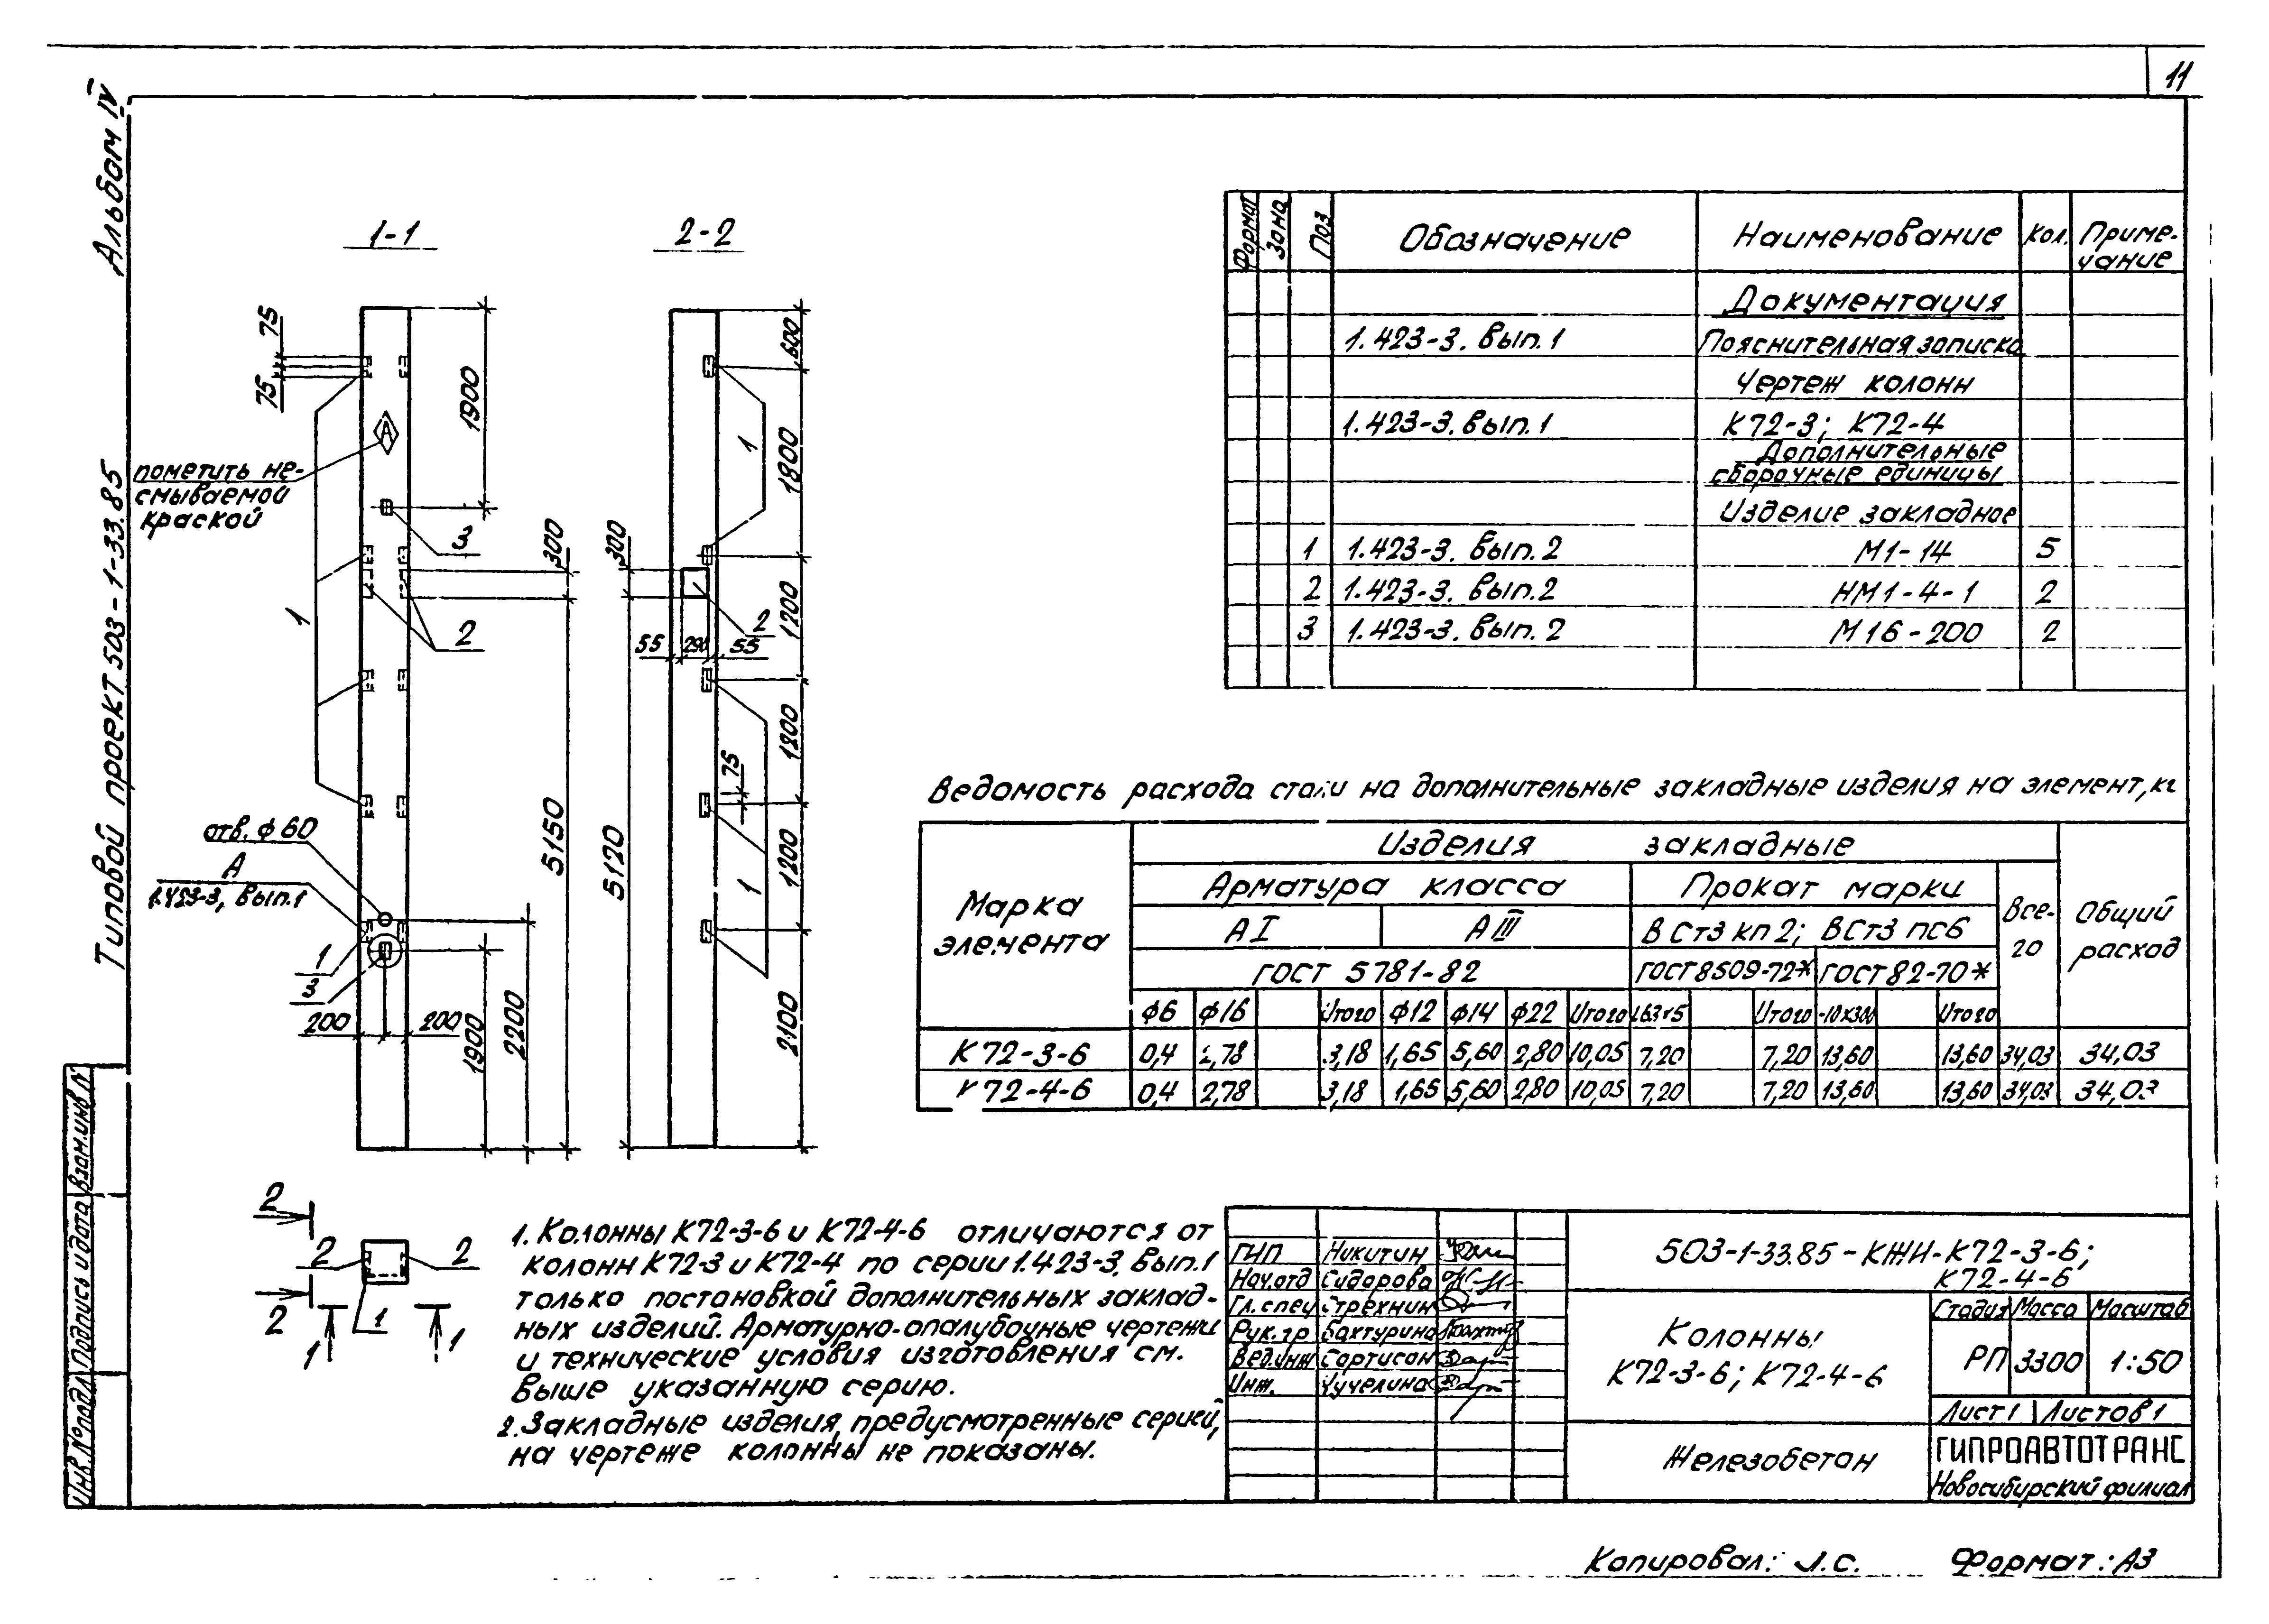 11
Альбом IV
Типовой проект 503-1-33.85
1-1
2-2
75
75
1900
пометить не-
смываемой
краской
А
3
300
1
2
5150
отв. ф 60
А
1.423-3, вып.1
1
3
200
200
1900
2200
600
1
1800
300
2
55
290
55
1200
1200
75
5120
1
1200
2100
2
2
2
2
1
1
1
Формат
Зона
Поз
Обозначение
Наименование
Кол.
Приме-
чание
Документация
1.423-3. вып.1
Пояснительная записка
Чертеж колонн
1.423-3. вып.1
К72-3; К72-4
Дополнительные
сборочные единицы
Изделие закладное
1 1.423-3. вып.2 М1-14 5
2 1.423-3. вып.2 НМ1-4-1 2
3 1.423-3. вып.2 М16-200 2
Ведомость расхода стали на дополнительные закладные изделия на элемент, кг
Марка
элемента
Изделия закладные
Арматура класса
Прокат марки
Все-
го
Общий
расход
А I
А III
В Ст3 кп2; ВСт3 пс6
ГОСТ 5781-82
ГОСТ 8509-72*
ГОСТ 82-70*
ф6 ф16 Итого ф12 ф14 ф22 Итого L63×5 Итого -10×300 Итого
К 72-3-6 0,4 2,78 3,18 1,65 5,60 2,80 10,05 7,20 7,20 13,60 13,60 34,03 34,03
К 72-4-6 0,4 2,78 3,18 1,65 5,60 2,80 10,05 7,20 7,20 13,60 13,60 34,03 34,03
1. Колонны К72-3-6 и К72-4-6 отличаются от
колонн К72-3 и К72-4 по серии 1.423-3. вып.1
только постановкой дополнительных заклад-
ных изделий. Арматурно-опалубочные чертежи
и технические условия изготовления см.
выше указанную серию.
2. Закладные изделия, предусмотренные серией,
на чертеже колонны не показаны.
ГИП Никитин
Нач.отд Сидорова
Гл.спец Стрехнин
Рук.гр Бахтурина
Вед.инж Сартисон
Инж. Чучелина
503-1-33.85-КЖИ-К72-3-6;
К72-4-6
Колонны
К72-3-6; К72-4-6
Стадия Масса Масштаб
РП 3300 1:50
Лист 1 Листов 1
Железобетон
ГИПРОАВТОТРАНС
Новосибирский филиал
Инв.№подл Подпись и дата Взам.инв.N
Копировал:
Формат: А3